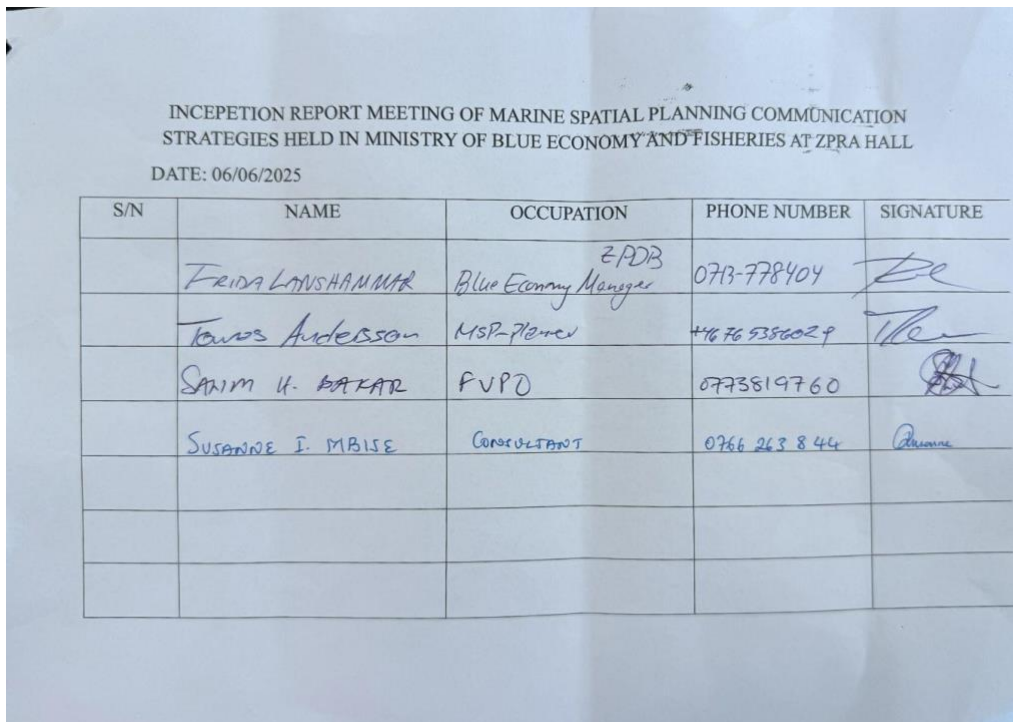 INCEPETION REPORT MEETING OF MARINE SPATIAL PLANNING COMMUNICATION
STRATEGIES HELD IN MINISTRY OF BLUE ECONOMY AND FISHERIES AT ZPRA HALL
DATE: 06/06/2025
S/N NAME OCCUPATION PHONE NUMBER SIGNATURE
FRIDA LANSHAMMAR Blue Economy Manager ZPDB 0713-778404
Andersson MSP-Planer +46765386029
SALIM H. BAKAR FVPO 0773819760
SUSANNE I. MBISE CONSULTANT 0766 263 844